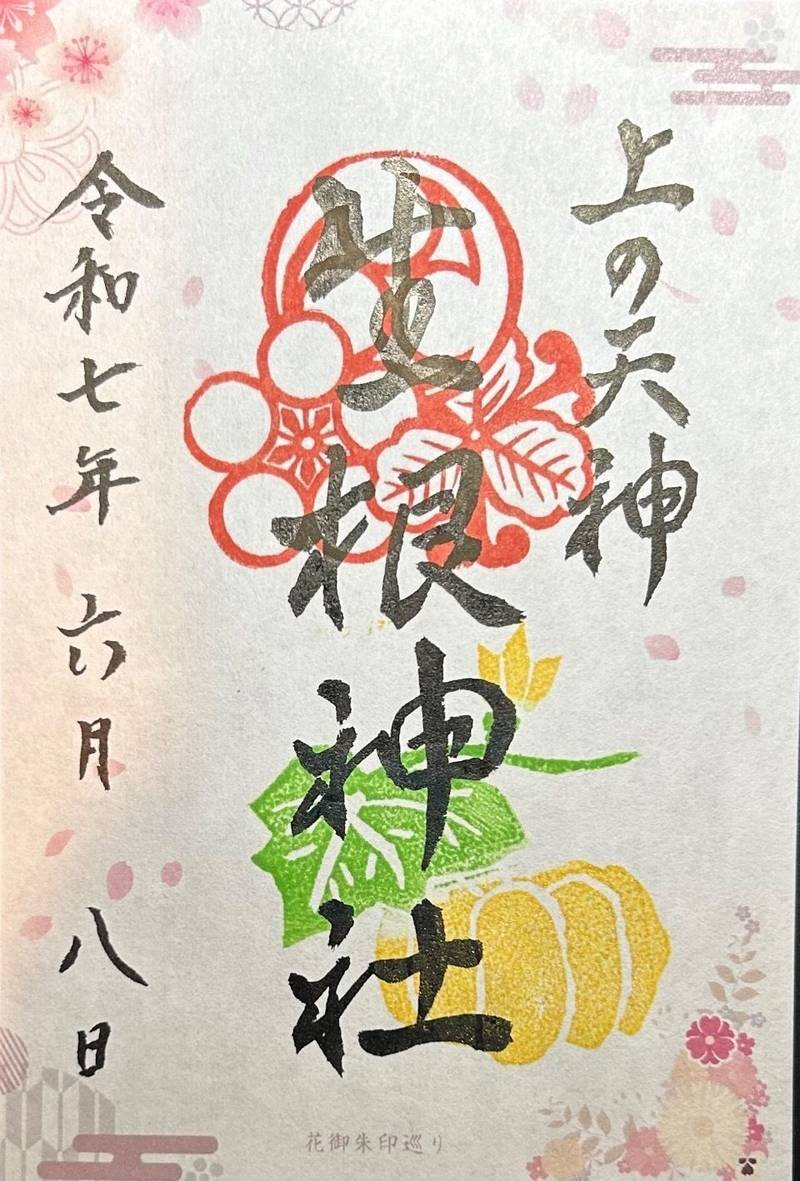 上の天神
生根神社
令和七年 六月 八日
花御朱印巡り